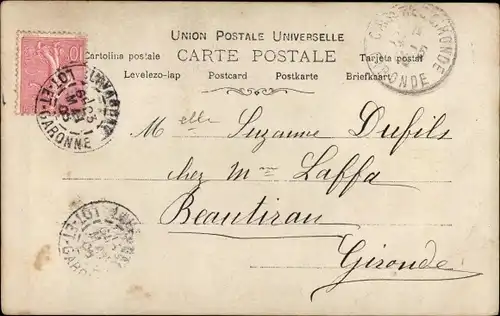 UNION POSTALE UNIVERSELLE
CARTE POSTALE
Cartolina postale Tarjeta postal
Levelezo-lap Postcard Postkarte Briefkaart
10
LOT-ET-GARONNE
GIRONDE
Melle Suzanne Dufils
chez Mme Laffa
Beautiran
Gironde
LOT-ET-GARONNE